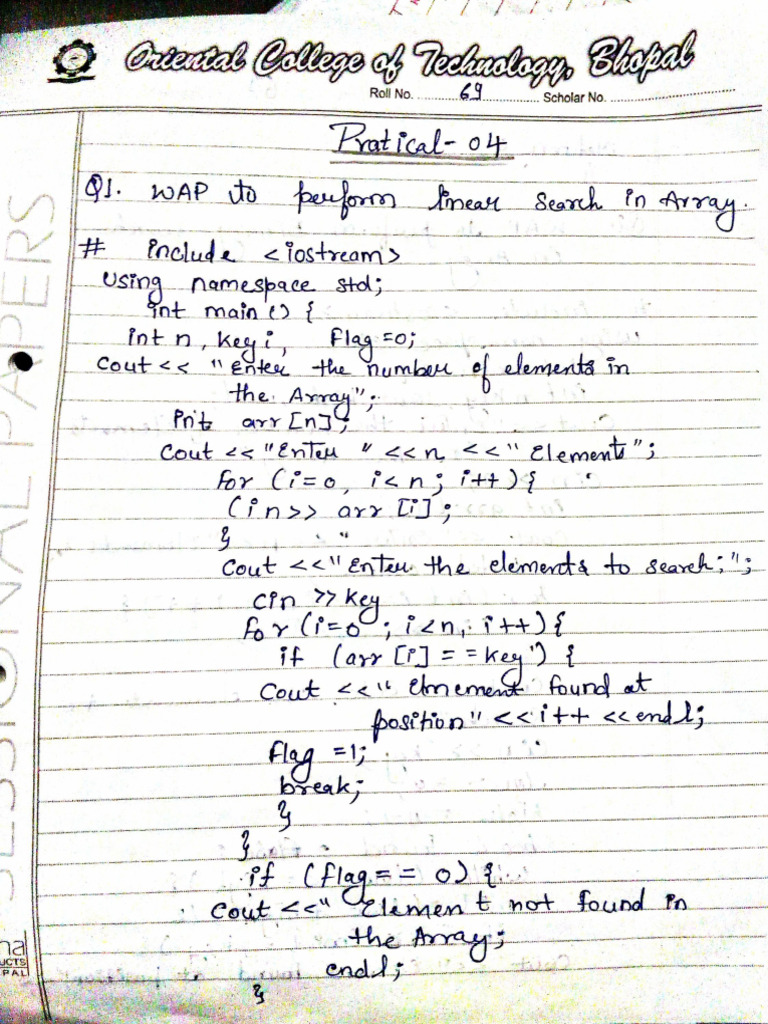 Oriental College of Technology, Bhopal
Roll No. 69 Scholar No.
Pratical - 04
Q1. WAP to perform linear search in Array.
# include <iostream>
using namespace std;
int main () {
int n, key i, flag =0;
cout << "Enter the number of elements in
the Array";
int arr [n];
cout << "Enter " << n << " Elements";
for (i=0, i< n; i++){
(in>> arr [i];
}
cout <<"Enter the elements to search;";
cin >> key
for (i=0 ; i<n, i++){
if (arr [i] = = key') {
cout << " Elmement found at
position" << i++ << endl;
flag =1;
break;
}
}
if (flag = = 0) {
cout <<" Element not found in
the Array;
endl;
}
SESSIONAL PAPERS
na
UCTS
PAL